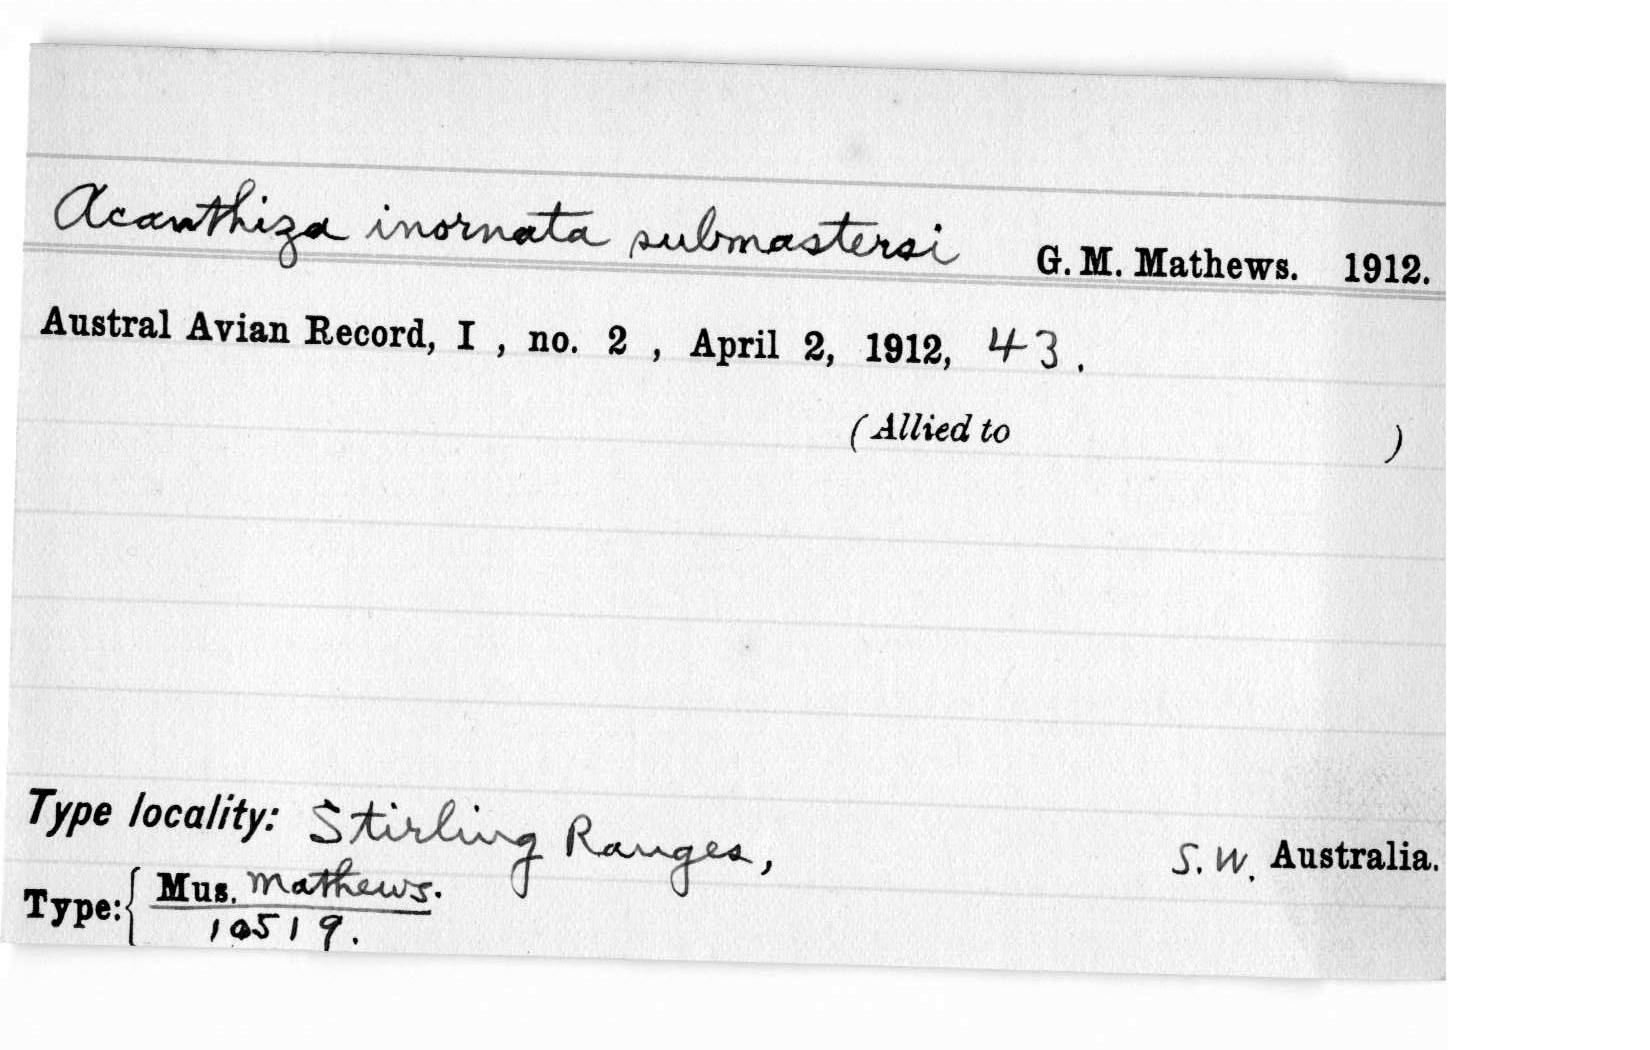 Acanthiza inornata submastersi G. M. Mathews. 1912.
Austral Avian Record, I , no. 2 , April 2, 1912, 43.
(Allied to )
Type locality: Stirling Ranges, S. W. Australia.
Type: { Mus. Mathews.
10519.